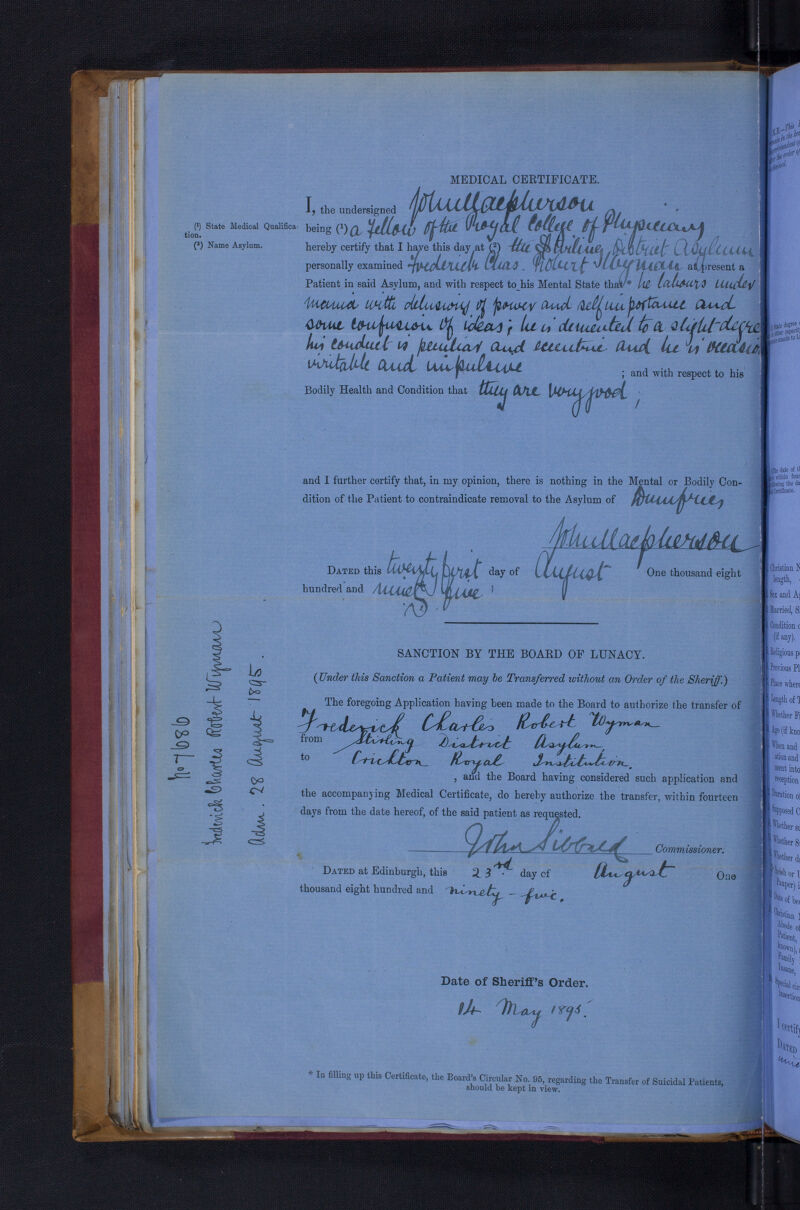 MEDICAL CERTIFICATE.
I, the undersigned John Macpherson
(¹) State Medical Qualifica-
tion.
being (¹) a Fellow of the Royal College of Physicians
(²) Name Asylum.
hereby certify that I have this day at (²) the Stirling District Asylum
personally examined Frederick Chas. Robert Wyman at present a
Patient in said Asylum, and with respect to his Mental State that * he labours under
mania with delusions of power and self importance and
some confusion of ideas; he is demented to a slight degree
his conduct is peculiar and eccentric and he is
irritable and impulsive ; and with respect to his
Bodily Health and Condition that they are very good,
and I further certify that, in my opinion, there is nothing in the Mental or Bodily Con-
dition of the Patient to contraindicate removal to the Asylum of Dumfries
John Macpherson
DATED this twenty first day of August One thousand eight
hundred and ninety five
SANCTION BY THE BOARD OF LUNACY.
(Under this Sanction a Patient may be Transferred without an Order of the Sheriff.)
The foregoing Application having been made to the Board to authorize the transfer of
Frederick Charles Robert Wyman
from Stirling District Asylum
to Crichton Royal Institution.
, and the Board having considered such application and
the accompanying Medical Certificate, do hereby authorize the transfer, within fourteen
days from the date hereof, of the said patient as requested.
John Sibbald Commissioner.
DATED at Edinburgh, this 23rd. day of August One
thousand eight hundred and ninety - five.
Date of Sheriff's Order.
14 May 1895.
* In filling up this Certificate, the Board's Circular No. 95, regarding the Transfer of Suicidal Patients,
should be kept in view.
No 7686
Frederick Charles Robert Wyman
Adm. 28 August 1895.